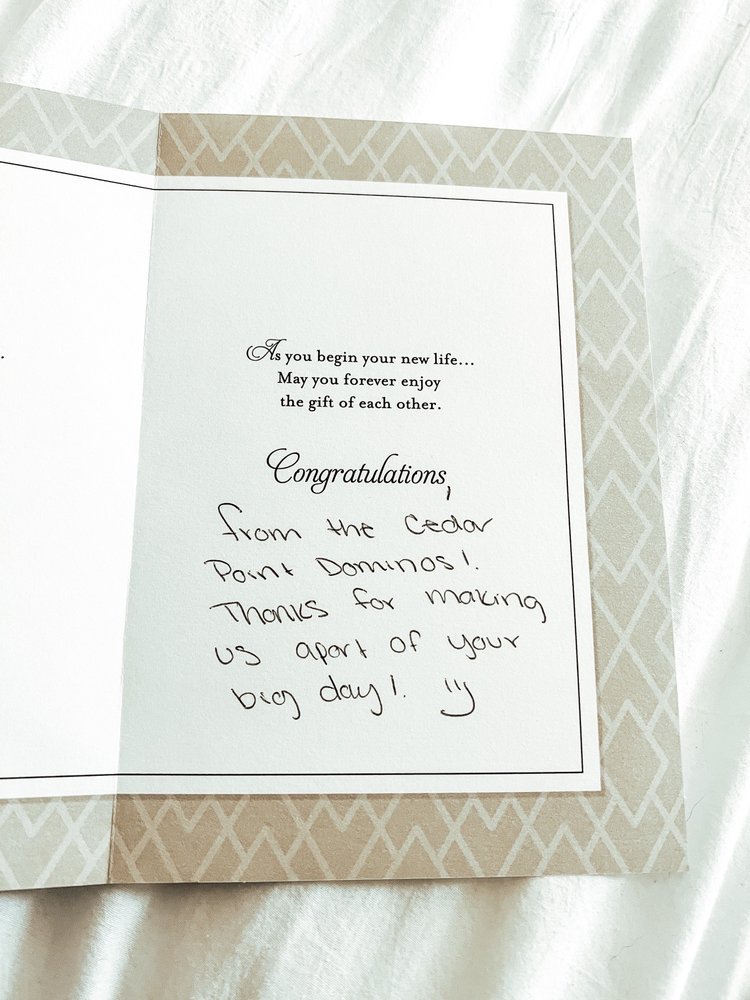 As you begin your new life...
May you forever enjoy
the gift of each other.
Congratulations,
from the Cedar
Point Dominos!
Thanks for making
us apart of your
big day! :)